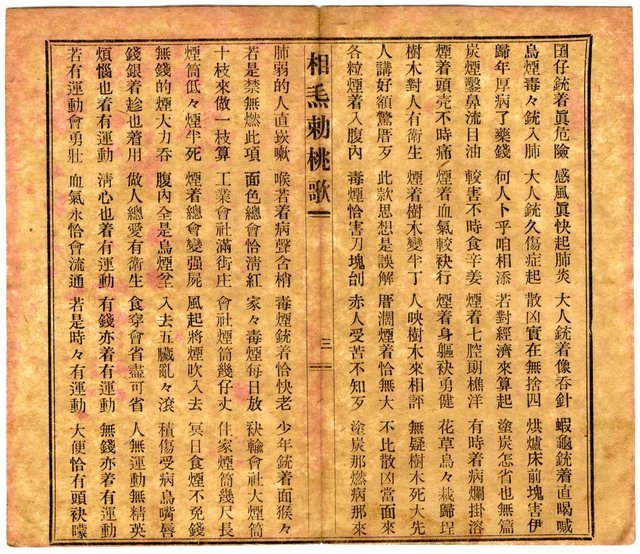 囝仔銃着眞危險　感風眞快起肺炎　大人銃着像吞針　蝦龜銃着直喝喊
烏煙毒々銃入肺　大人銃久傷症起　散凶實在無捨四　烘爐床前塊害伊
歸年厚病了藥錢　何人卜乎咱相添　若對經濟來算起　塗炭怎省也無篇
炭煙鑿鼻流目油　較害不時食辛姜　煙着七腔朗樵洋　有時着病爛掛溶
煙着頭壳不時痛　煙着血氣較袂行　煙着身軀袂勇健　花草烏々栽歸埕
樹木對人有衛生　煙着樹木變半丁　人映樹木來相評　無疑樹木死大先
人講好額驚厝歹　此款思想是誤解　厝濶煙着恰無大　不比散凶當面來
各粒煙着入腹內　毒煙恰害刀塊刣　赤人受苦不知歹　塗炭那燃病那來
相𤆬勅桃歌　三
肺弱的人直崁嗽　喉若着病聲含梢　毒煙銃着恰快老　少年銃着面猴々
若是禁無燃此項　面色總會恰淸紅　家々毒煙每日放　袂輸會社大煙筒
十枝來做一枝算　工業會社滿街庄　會社煙筒幾仔丈　住家煙筒幾尺長
煙筒低々煙半死　煙着總會變强屍　風起將煙吹入去　冥日食煙不免錢
無錢的煙大力吞　腹內全是烏煙坌　入去五臟亂々滾　積傷受病烏嘴唇
錢銀着趁也着用　做人總愛有衛生　食穿會省盡可省　人無運動無精英
煩惱也着有運動　淸心也着有運動　有錢亦着有運動　無錢亦着有運動
若有運動會勇壯　血氣永恰會流通　若是時々有運動　大便恰有頭袂矇